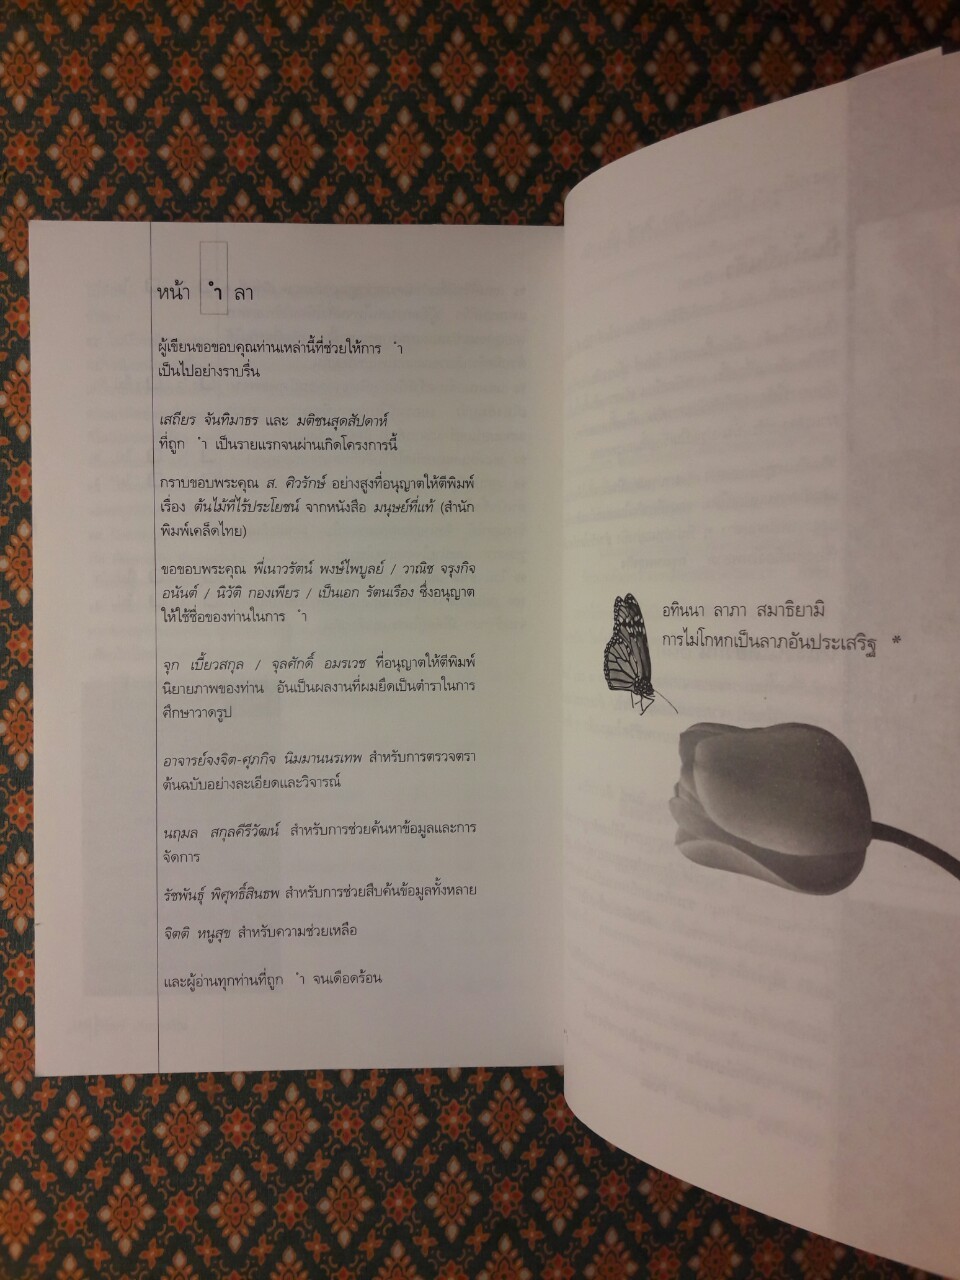 หน้า ำ ลา
ผู้เขียนขอขอบคุณท่านเหล่านี้ที่ช่วยให้การ ำ
เป็นไปอย่างราบรื่น
เสถียร จันทิมาธร และ มติชนสุดสัปดาห์
ที่ถูก ำ เป็นรายแรกจนผ่านเกิดโครงการนี้
กราบขอบพระคุณ ส. ศิวรักษ์ อย่างสูงที่อนุญาตให้ตีพิมพ์
เรื่อง ต้นไม้ที่ไร้ประโยชน์ จากหนังสือ มนุษย์ที่แท้ (สำนัก
พิมพ์เคล็ดไทย)
ขอขอบพระคุณ พี่เนาวรัตน์ พงษ์ไพบูลย์ / วาณิช จรุงกิจ
อนันต์ / นิวัติ กองเพียร / เป็นเอก รัตนเรือง ซึ่งอนุญาต
ให้ใช้ชื่อของท่านในการ ำ
จุก เบี้ยวสกุล / จุลศักดิ์ อมรเวช ที่อนุญาตให้ตีพิมพ์
นิยายภาพของท่าน อันเป็นผลงานที่ผมยึดเป็นตำราในการ
ศึกษาวาดรูป
อาจารย์จงจิต-ศุภกิจ นิมมานนรเทพ สำหรับการตรวจตรา
ต้นฉบับอย่างละเอียดและวิจารณ์
นฤมล สกุลคีรีวัฒน์ สำหรับการช่วยค้นหาข้อมูลและการ
จัดการ
รัชพันธุ์ พิศุทธิ์สินธพ สำหรับการช่วยสืบค้นข้อมูลทั้งหลาย
จิตติ หนูสุข สำหรับความช่วยเหลือ
และผู้อ่านทุกท่านที่ถูก ำ จนเดือดร้อน
อทินนา ลาภา สมาธิยามิ
การไม่โกหกเป็นลาภอันประเสริฐ *